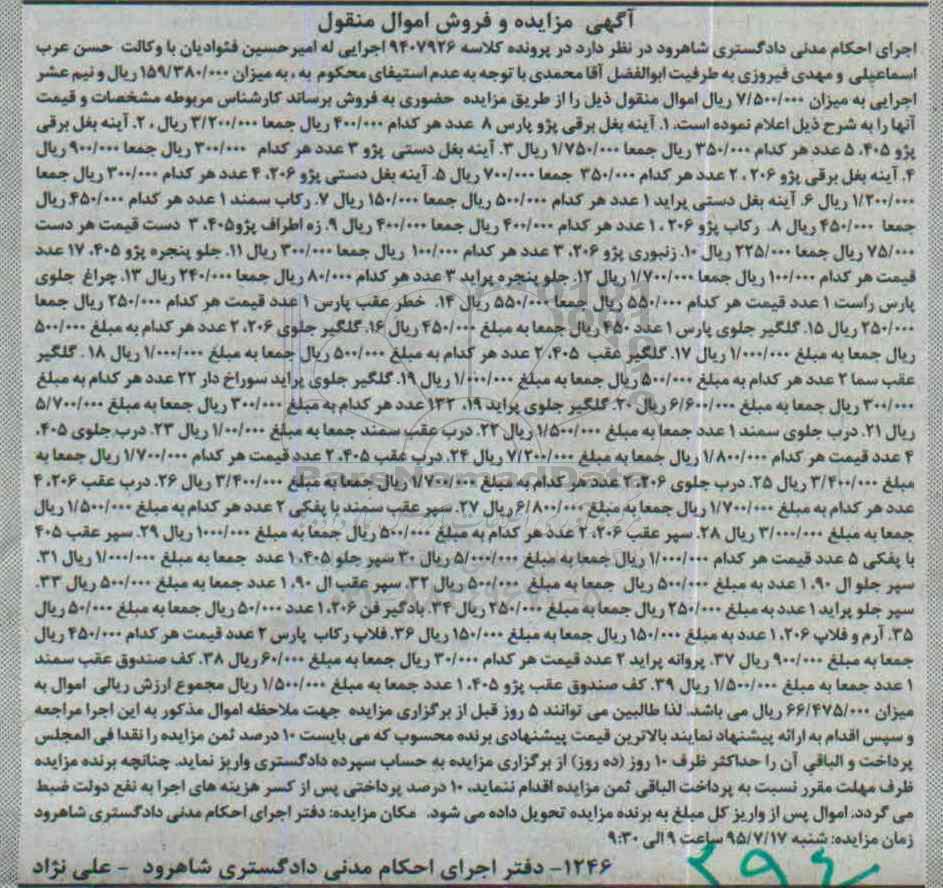 آگهی مزایده و فروش اموال منقول
اجرای احکام مدنی دادگستری شاهرود در نظر دارد در پرونده کلاسه ۹۴۰۷۹۲۶ اجرایی له امیرحسین فئوادیان با وکالت حسن عرب
اسماعیلی و مهدی فیروزی به طرفیت ابوالفضل آقا محمدی با توجه به عدم استیفای محکوم به ، به میزان ۱۵۹/۳۸۰/۰۰۰ ریال و نیم عشر
اجرایی به میزان ۷/۵۰۰/۰۰۰ ریال اموال منقول ذیل را از طریق مزایده حضوری به فروش برساند کارشناس مربوطه مشخصات و قیمت
آنها را به شرح ذیل اعلام نموده است. ۱. آینه بغل برقی پژو پارس ۸ عدد هر کدام ۴۰۰/۰۰۰ ریال جمعا ۳/۲۰۰/۰۰۰ ریال ، ۲. آینه بغل برقی
پژو ۴۰۵، ۵ عدد هر کدام ۳۵۰/۰۰۰ ریال جمعا ۱/۷۵۰/۰۰۰ ریال ۳. آینه بغل دستی پژو ۳ عدد هر کدام ۳۰۰/۰۰۰ ریال جمعا ۹۰۰/۰۰۰ ریال
۴. آینه بغل برقی پژو ۲۰۶ ، ۲ عدد هر کدام ۳۵۰/۰۰۰ جمعا ۷۰۰/۰۰۰ ریال ۵. آینه بغل دستی پژو ۲۰۶، ۴ عدد هر کدام ۳۰۰/۰۰۰ ریال جمعا
۱/۲۰۰/۰۰۰ ریال ۶. آینه بغل دستی پراید ۱ عدد هر کدام ۵۰۰/۰۰۰ ریال جمعا ۱۵۰/۰۰۰ ریال ۷. رکاب سمند ۱ عدد هر کدام ۴۵۰/۰۰۰ ریال
جمعا ۴۵۰/۰۰۰ ریال ۸. رکاب پژو ۲۰۶ ، ۱ عدد هر کدام ۴۰۰/۰۰۰ ریال جمعا ۴۰۰/۰۰۰ ریال ۹. زه اطراف پژو۴۰۵، ۳ دست قیمت هر دست
۷۵/۰۰۰ ریال جمعا ۲۲۵/۰۰۰ ریال ۱۰. زنبوری پژو ۲۰۶، ۳ عدد هر کدام ۱۰۰/۰۰۰ ریال جمعا ۳۰۰/۰۰۰ ریال ۱۱. جلو پنجره پژو ۴۰۵، ۱۷ عدد
قیمت هر کدام ۱۰۰/۰۰۰ ریال جمعا ۱/۷۰۰/۰۰۰ ریال ۱۲. جلو پنجره پراید ۳ عدد هر کدام ۸۰/۰۰۰ ریال جمعا ۲۴۰/۰۰۰ ریال ۱۳. چراغ جلوی
پارس راست ۱ عدد قیمت هر کدام ۵۵۰/۰۰۰ ریال جمعا ۵۵۰/۰۰۰ ریال ۱۴. خطر عقب پارس ۱ عدد قیمت هر کدام ۲۵۰/۰۰۰ ریال جمعا
۲۵۰/۰۰۰ ریال ۱۵. گلگیر جلوی پارس ۱ عدد ۴۵۰ ریال جمعا به مبلغ ۴۵۰/۰۰۰ ریال ۱۶. گلگیر جلوی ۲۰۶، ۲ عدد هر کدام به مبلغ ۵۰۰/۰۰۰
ریال جمعا به مبلغ ۱/۰۰۰/۰۰۰ ریال ۱۷. گلگیر عقب ۴۰۵، ۲ عدد هر کدام به مبلغ ۵۰۰/۰۰۰ ریال جمعا به مبلغ ۱/۰۰۰/۰۰۰ ریال ۱۸ . گلگیر
عقب سما ۲ عدد هر کدام به مبلغ ۵۰۰/۰۰۰ ریال جمعا به مبلغ ۱/۰۰۰/۰۰۰ ریال ۱۹. گلگیر جلوی پراید سوراخ دار ۲۲ عدد هر کدام به مبلغ
۳۰۰/۰۰۰ ریال جمعا به مبلغ ۶/۶۰۰/۰۰۰ ریال ۲۰. گلگیر جلوی پراید ۱۹، ۱۳۲ عدد هر کدام به مبلغ ۳۰۰/۰۰۰ ریال جمعا به مبلغ ۵/۷۰۰/۰۰۰
ریال ۲۱. درب جلوی سمند ۱ عدد جمعا به مبلغ ۱/۵۰۰/۰۰۰ ریال ۲۲. درب عقب سمند جمعا به مبلغ ۱/۰۰/۰۰۰ ریال ۲۳. درب جلوی ۴۰۵،
۴ عدد قیمت هر کدام ۱/۸۰۰/۰۰۰ ریال جمعا به مبلغ ۷/۲۰۰/۰۰۰ ریال ۲۴. درب عقب ۴۰۵، ۲ عدد قیمت هر کدام ۱/۷۰۰/۰۰۰ ریال جمعا به
مبلغ ۳/۴۰۰/۰۰۰ ریال ۲۵. درب جلوی ۲۰۶، ۲ عدد هر کدام به مبلغ ۱/۷۰۰/۰۰۰ ریال جمعا به مبلغ ۳/۴۰۰/۰۰۰ ریال ۲۶. درب عقب ۲۰۶، ۴
عدد هر کدام به مبلغ ۱/۷۰۰/۰۰۰ ریال جمعا به مبلغ ۶/۸۰۰/۰۰۰ ریال ۲۷. سپر عقب سمند با پفکی ۲ عدد هر کدام به مبلغ ۱/۵۰۰/۰۰۰ ریال
جمعا به مبلغ ۳/۰۰۰/۰۰۰ ریال ۲۸. سپر عقب ۲۰۶، ۲ عدد هر کدام به مبلغ ۵۰۰/۰۰۰ ریال جمعا به مبلغ ۱۰۰۰/۰۰۰ ریال ۲۹. سپر عقب ۴۰۵
با پفکی ۵ عدد قیمت هر کدام ۱/۰۰۰/۰۰۰ ریال جمعا به مبلغ ۵/۰۰۰/۰۰۰ ریال ۳۰ سپر جلو ۴۰۵، ۱ عدد جمعا به مبلغ ۱/۰۰۰/۰۰۰ ریال ۳۱.
سپر جلو ال ۹۰، ۱ عدد به مبلغ ۵۰۰/۰۰۰ ریال جمعا به مبلغ ۵۰۰/۰۰۰ ریال ۳۲. سپر عقب ال ۹۰، ۱ عدد جمعا به مبلغ ۵۰۰/۰۰۰ ریال ۳۳.
سپر جلو پراید ۱ عدد به مبلغ ۲۵۰/۰۰۰ ریال جمعا به مبلغ ۲۵۰/۰۰۰ ریال ۳۴. بادگیر فن ۲۰۶، ۱ عدد ۵۰/۰۰۰ ریال جمعا به مبلغ ۵۰/۰۰۰ ریال
۳۵. آرم و فلاپ ۲۰۶، ۱ عدد به مبلغ ۱۵۰/۰۰۰ ریال جمعا به مبلغ ۱۵۰/۰۰۰ ریال ۳۶. فلاپ رکاب پارس ۲ عدد قیمت هر کدام ۴۵۰/۰۰۰ ریال
جمعا به مبلغ ۹۰۰/۰۰۰ ریال ۳۷. پروانه پراید ۲ عدد قیمت هر کدام ۳۰/۰۰۰ ریال جمعا به مبلغ ۶۰/۰۰۰ ریال ۳۸. کف صندوق عقب سمند
۱ عدد جمعا به مبلغ ۱/۵۰۰/۰۰۰ ریال ۳۹. کف صندوق عقب پژو ۴۰۵، ۱ عدد جمعا به مبلغ ۱/۵۰۰/۰۰۰ ریال مجموع ارزش ریالی اموال به
میزان ۶۶/۴۷۵/۰۰۰ ریال می باشد. لذا طالبین می توانند ۵ روز قبل از برگزاری مزایده جهت ملاحظه اموال مذکور به این اجرا مراجعه
و سپس اقدام به ارائه پیشنهاد نمایند بالاترین قیمت پیشنهادی برنده محسوب که می بایست ۱۰ درصد ثمن مزایده را نقدا فی المجلس
پرداخت و الباقی آن را حداکثر ظرف ۱۰ روز (ده روز) از برگزاری مزایده به حساب سپرده دادگستری واریز نماید. چنانچه برنده مزایده
ظرف مهلت مقرر نسبت به پرداخت الباقی ثمن مزایده اقدام ننماید، ۱۰ درصد پرداختی پس از کسر هزینه های اجرا به نفع دولت ضبط
می گردد. اموال پس از واریز کل مبلغ به برنده مزایده تحویل داده می شود. مکان مزایده: دفتر اجرای احکام مدنی دادگستری شاهرود
زمان مزایده: شنبه ۹۵/۷/۱۷ ساعت ۹ الی ۹:۳۰
۱۲۴۶- دفتر اجرای احکام مدنی دادگستری شاهرود - علی نژاد
ParsNamadData